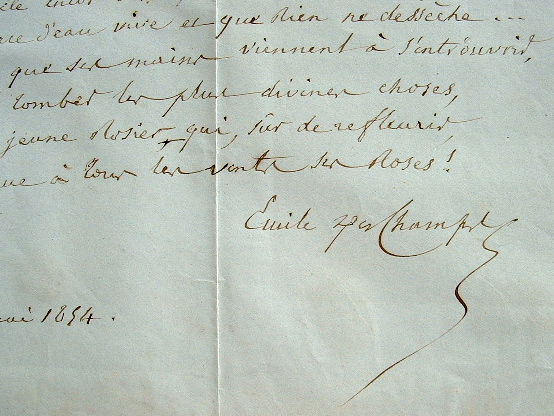 d'eau vive et que Rien ne dessèche ...
que ses mains viennent à s'entrouvrir,
tomber les plus divines choses,
jeune Rosier qui, sûr de refleurir,
à tous les vents ses Roses !
Emile DesChamps
mai 1854.